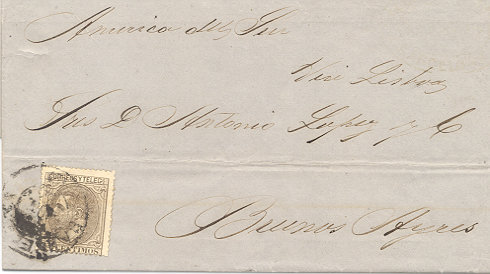 America del Sur
Via Lisboa
Sres D. Antonio Lopez y C
CORREOS Y TELEGS
Buenos Ayres